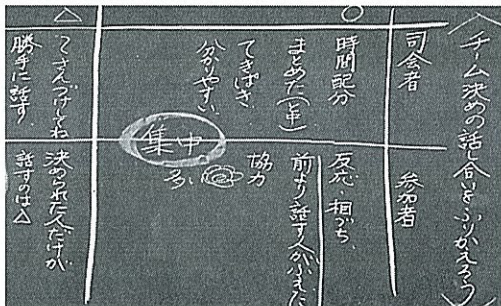 〈チーム決めの話し合いをふりかえろう〉
司会者
参加者
○
時間配分
まとめた(と中)
てきぱき
分かりやすい
反応・相づち
前より話す人がふえた
協力
多い
集中
△
勝手に話す
決められた人だけが
話すのは△